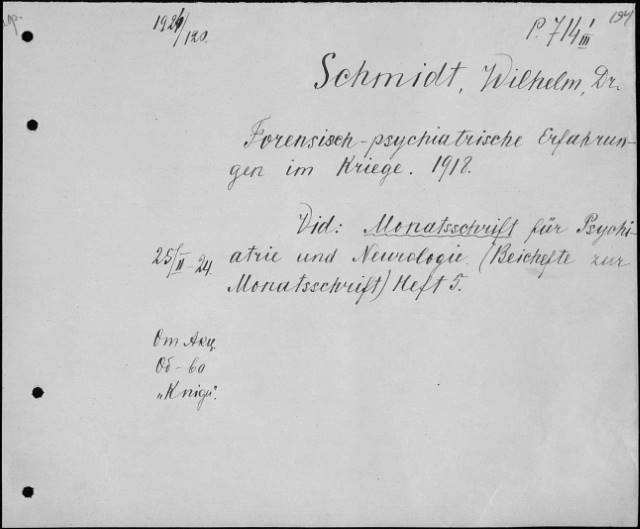 192⁄120.
P. 714 I/III
Schmidt, Wilhelm, Dr.
Forensisch-psychiatrische Erfahrun-
gen im Kriege. 1918.
Vid: Monatsschrift für Psychi-
25/II-24. atrie und Neurologie. (Beihefte zur
Monatsschrift) Heft 5.
От Акц.
Об-ва
„Kniga".